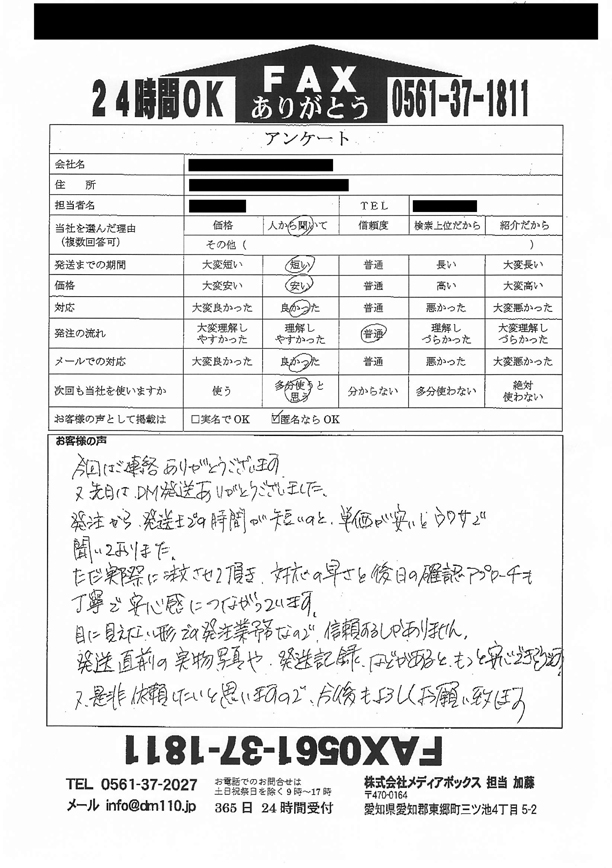 24時間OK
FAX
ありがとう
0561-37-1811
アンケート
会社名
住 所
担当者名 TEL
当社を選んだ理由
（複数回答可）
価格 人から聞いて 信頼度 検索上位だから 紹介だから
その他（ ）
発送までの期間 大変短い 短い 普通 長い 大変長い
価格 大変安い 安い 普通 高い 大変高い
対応 大変良かった 良かった 普通 悪かった 大変悪かった
発注の流れ 大変理解しやすかった 理解しやすかった 普通 理解しづらかった 大変理解しづらかった
メールでの対応 大変良かった 良かった 普通 悪かった 大変悪かった
次回も当社を使いますか 使う 多分使うと思う 分からない 多分使わない 絶対使わない
お客様の声として掲載は □実名でOK ☑匿名ならOK
お客様の声
今回はご連絡ありがとうございます
又先日はDM発送ありがとうございました、
発注から、発送までの時間が短いのと、単価が安いとウワサで
聞いておりました。
ただ実際に注文させて頂き、対応の早さと後日の確認アプローチも
丁寧で安心感につながっています。
目に見えない形での発注業務なので、信頼するしかありません。
発送直前の実物写真や、発送記録、などがあると、もっと安心できそうです
又、是非依頼したいと思いますので、今後もよろしくお願い致します
FAX0561-37-1811
TEL 0561-37-2027
メール info@dm110.jp
お電話でのお問合せは
土日祝祭日を除く9時～17時
365日 24時間受付
株式会社メディアボックス 担当 加藤
〒470-0164
愛知県愛知郡東郷町三ツ池4丁目5-2